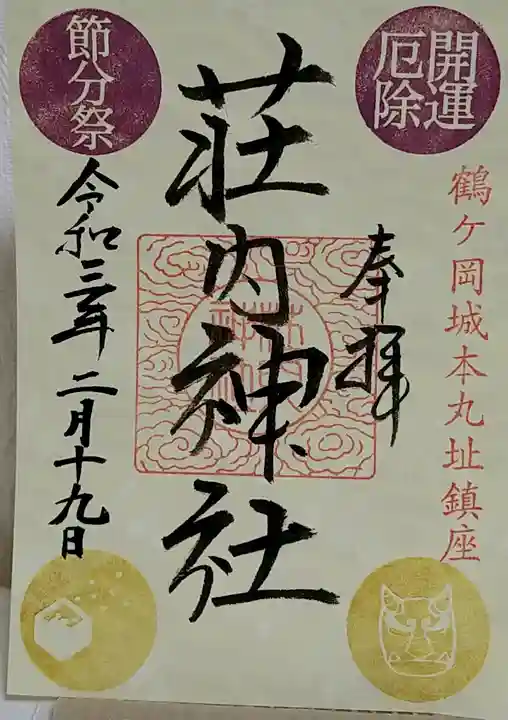 開運
厄除
鶴ケ岡城本丸址鎮座
奉拝
荘内神社
節分祭
令和三年二月十九日